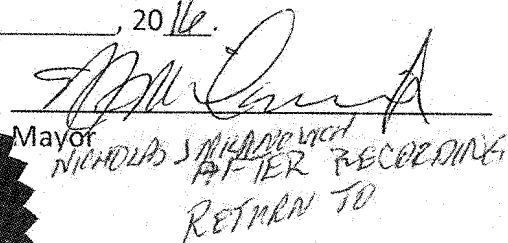 , 2016.
Mayor
NICHOLAS J
AFTER RECORDING
RETURN TO